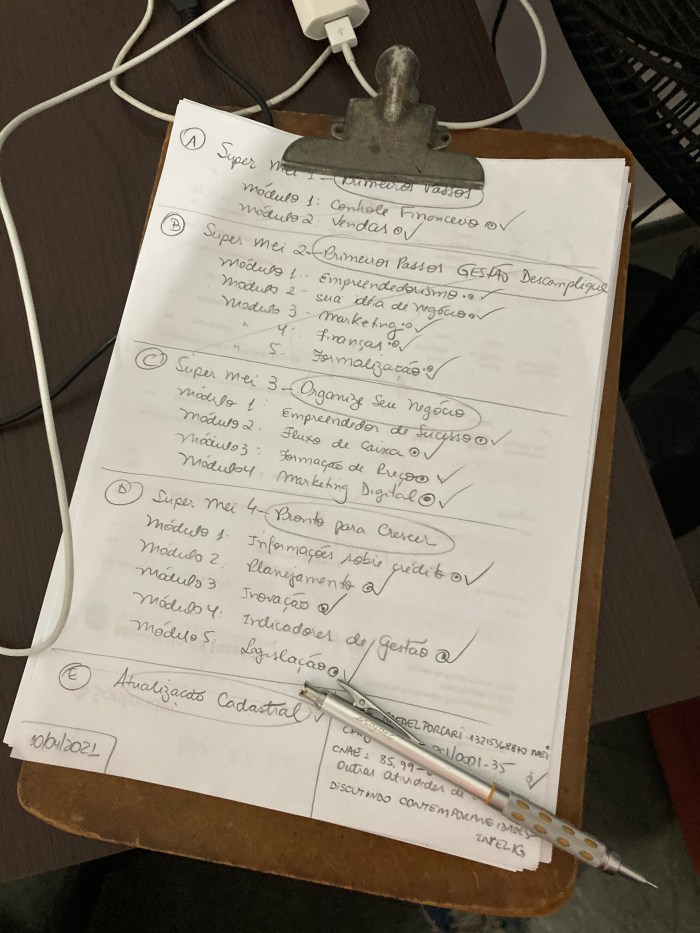 A Super Mei 1 - Primeiros Passos
Módulo 1: Controle Financeiro
Módulo 2: Vendas
B Super Mei 2 - Primeiros Passos GESTÃO Descomplique
Módulo 1 - Empreendedorismo
Módulo 2 - sua idéia de negócio
Módulo 3 - Marketing
" 4: Finanças
" 5. Formalização
C Super Mei 3 - Organize Seu negócio
Módulo 1: Empreendedor de Sucesso
Módulo 2. Fluxo de Caixa
Módulo 3: Formação de Preço
Módulo 4: Marketing Digital
D Super Mei 4 - Pronto para Crescer
Módulo 1: Informações sobre crédito
Módulo 2: Planejamento
Módulo 3: Inovação
Módulo 4: Indicadores de Gestão
Módulo 5: Legislação
E Atualização Cadastral
10/04/2021
PORCARI. 13215368870 MEI
/0001-35
CNAE: 85.99-
Outras atividades de
DISCUTINDO CONTEMPORANEIDADES